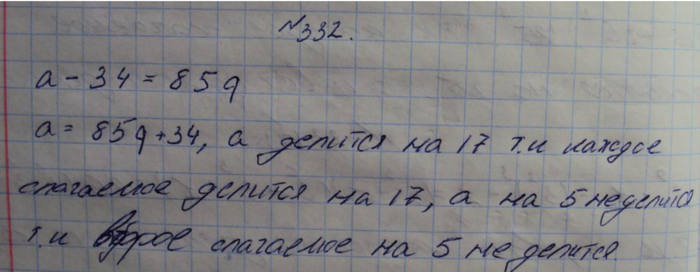 №332.
a - 34 = 85q
a = 85q+34, a делится на 17 т.к каждое
слагаемое делится на 17, а на 5 неделится
т.к второе слагаемое на 5 не делится.